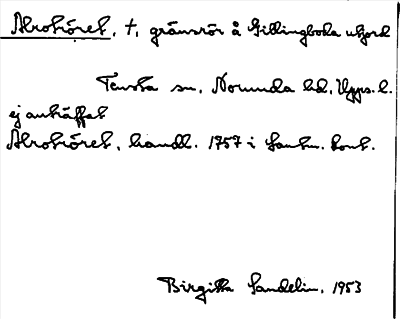 Alrotröret, †, gränsrör å Gillingboda utjord
Tensta sn, Norunda hd, Upps. l.
ej anträffat
Alrotröret, handl. 1757 i Lantm. kont.
Birgitta Sandelin, 1953